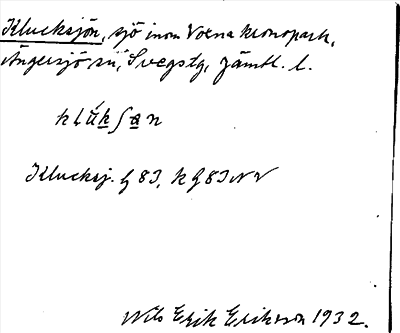 Klucksjön, sjö inom Voxna kronopark,
Ängersjö sn, Svegs tg, Jämtl. l.
klúkʃan
Klucksj. G 83, k G 83 NV
Nils Erik Eriksson 1932.